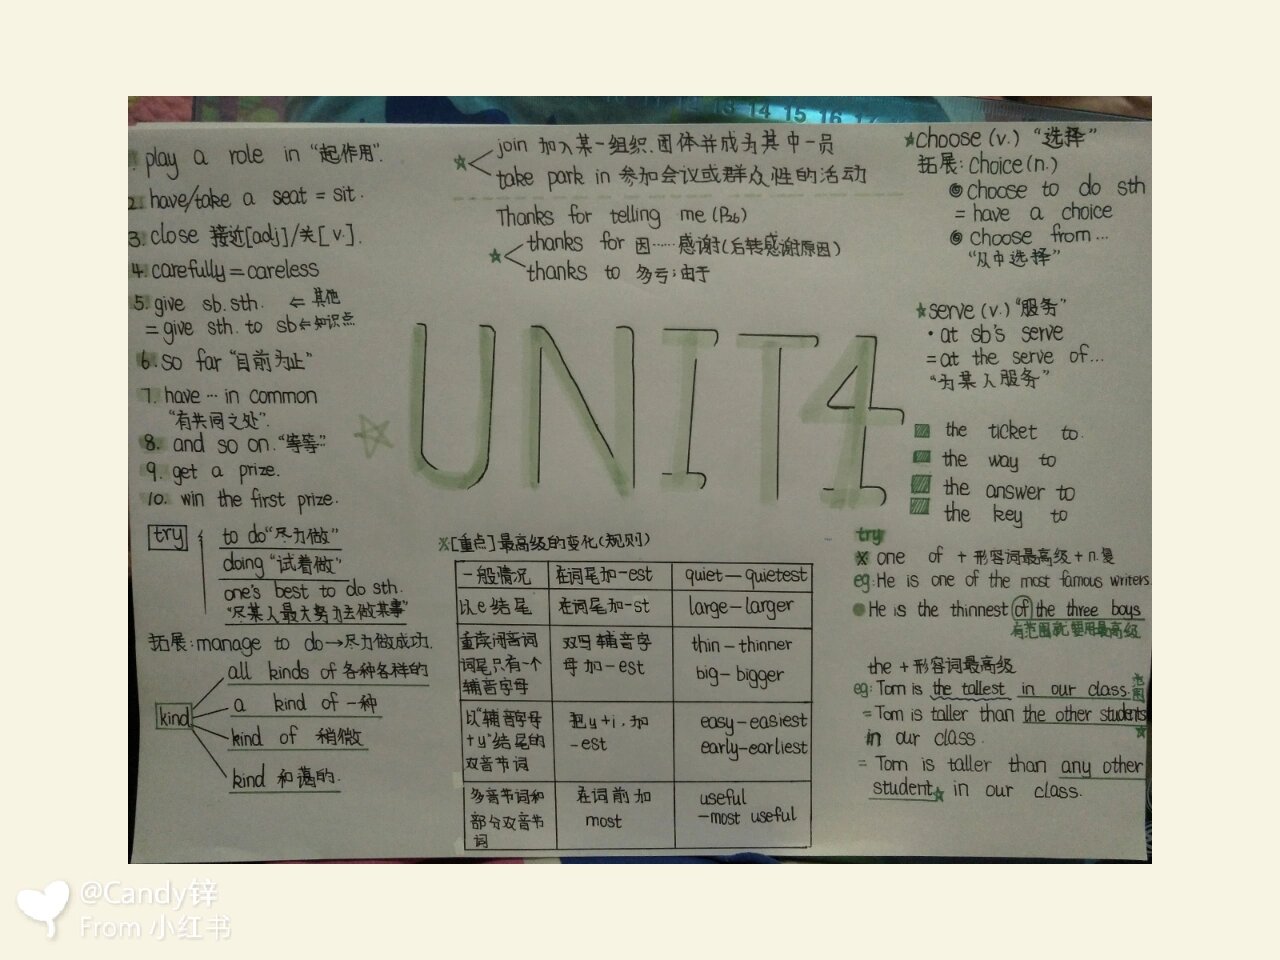 13 14 15 16 17
1. play a role in "起作用".
2. have/take a seat = sit.
3. close 接近[adj]/关[v.].
4. carefully = careless
5. give sb. sth. ⇐ 其他
= give sth. to sb ⇐ 知识点
6. so far "目前为止"
7. have … in common
"有共同之处".
8. and so on. "等等"
9. get a prize.
10. win the first prize.
try
to do "尽力做"
doing "试着做"
one's best to do sth.
"尽某人最大努力去做某事"
拓展: manage to do → 尽力做成功.
kind
all kinds of 各种各样的
a kind of 一种
kind of 稍微
kind 和蔼的.
join 加入某一组织.团体并成为其中一员
take park in 参加会议或群众性的活动
Thanks for telling me (P26)
thanks for 因……感谢(后转感谢原因)
thanks to 多亏;由于
UNIT4
※[重点]最高级的变化(规则)
一般情况 在词尾加-est quiet—quietest
以e结尾 在词尾加-st large—larger
重读闭音词 双写辅音字 thin—thinner
词尾只有一个 母加-est big—bigger
辅音字母
以"辅音字母 把y+i,加 easy—easiest
+y"结尾的 -est early—earliest
双音节词
多音节词和 在词前加 useful
部分双音节 most —most useful
词
★choose (v.) "选择"
拓展: choice (n.)
choose to do sth
= have a choice
choose from…
"从中选择"
★serve (v.) "服务"
· at sb's serve
= at the serve of…
"为某人服务"
the ticket to
the way to
the answer to
the key to
try
※ one of + 形容词最高级 + n.复
eg: He is one of the most famous writers.
He is the thinnest of the three boys
有范围就要用最高级
the + 形容词最高级
eg: Tom is the tallest in our class. 范围
= Tom is taller than the other students
in our class.
= Tom is taller than any other
student★ in our class.
@Candy锌
From 小红书